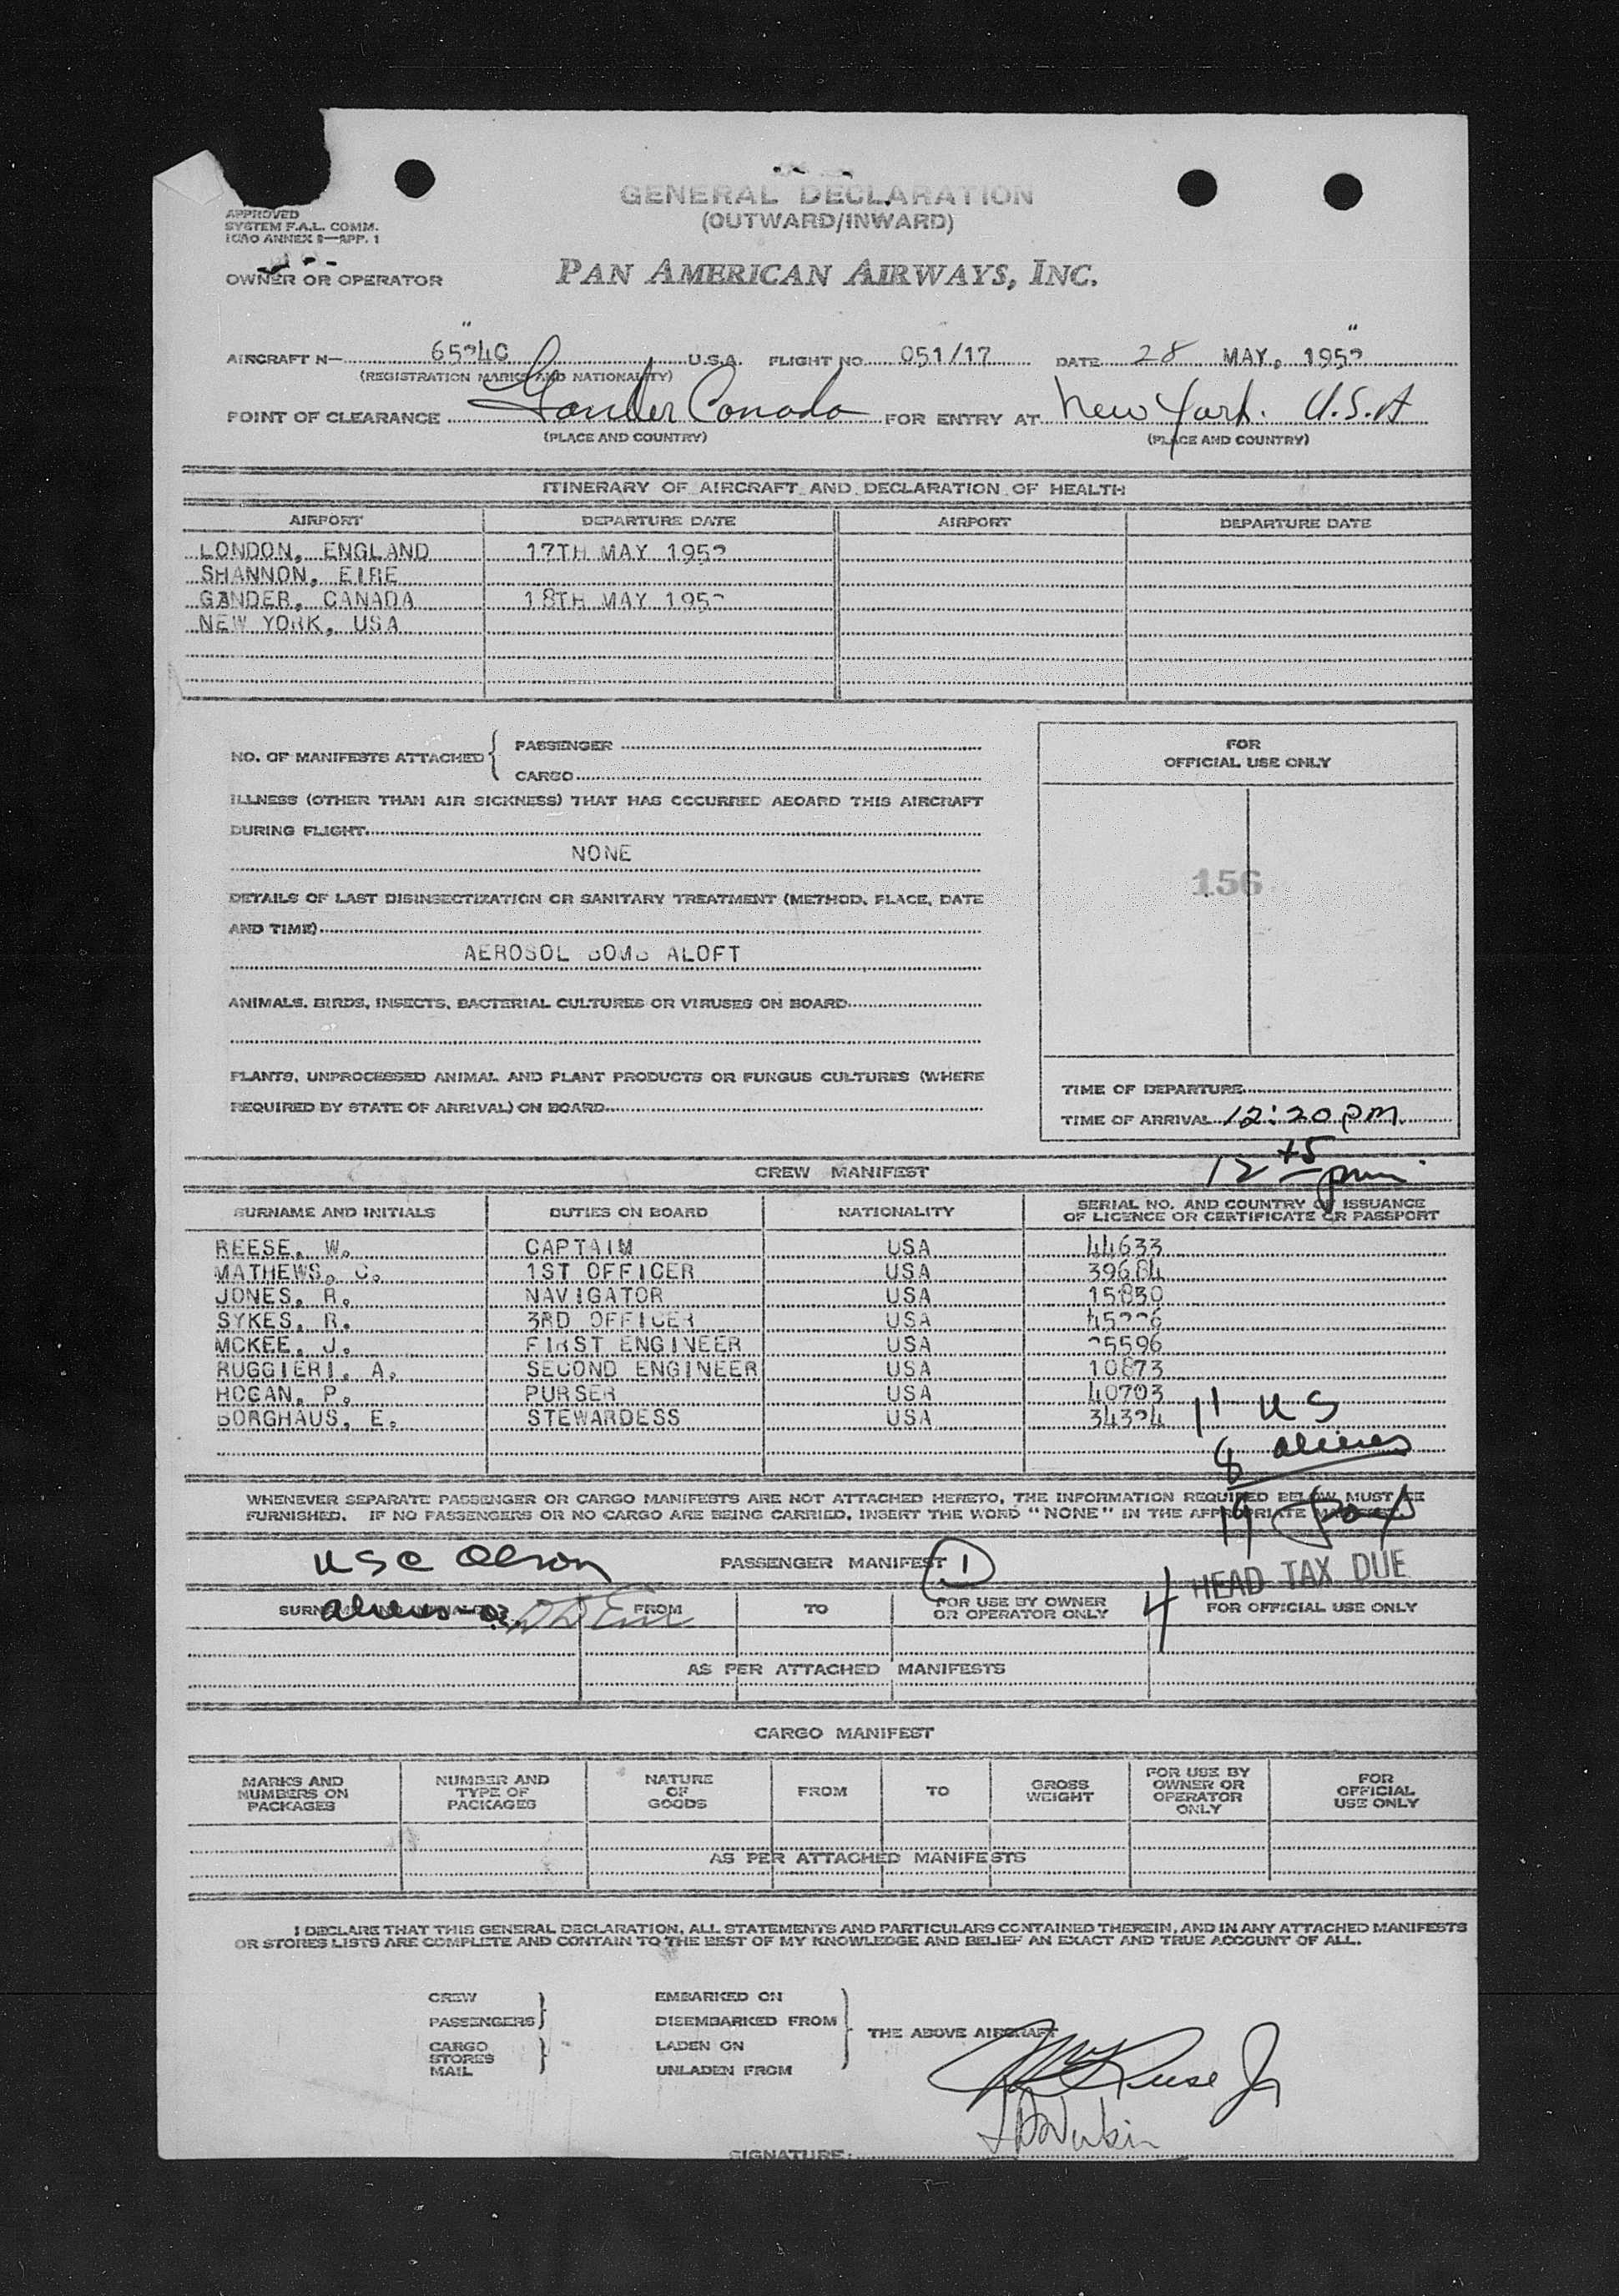 GENERAL DECLARATION
(OUTWARD/INWARD)
APPROVED
SYSTEM F.A.L. COMM.
ICAO ANNEX 9—APP. 1
OWNER OR OPERATOR PAN AMERICAN AIRWAYS, INC.
AIRCRAFT N— U.S.A. FLIGHT NO. 051/17 DATE 28 MAY, 1952
(REGISTRATION MARKS AND NATIONALITY)
POINT OF CLEARANCE Gander Canada FOR ENTRY AT New York. U.S.A
(PLACE AND COUNTRY) (PLACE AND COUNTRY)
ITINERARY OF AIRCRAFT AND DECLARATION OF HEALTH
AIRPORT DEPARTURE DATE AIRPORT DEPARTURE DATE
LONDON, ENGLAND 17TH MAY 1952
SHANNON, EIRE
GANDER, CANADA 18TH MAY 1952
NEW YORK, USA
NO. OF MANIFESTS ATTACHED { PASSENGER
CARGO
FOR
OFFICIAL USE ONLY
ILLNESS (OTHER THAN AIR SICKNESS) THAT HAS OCCURRED ABOARD THIS AIRCRAFT
DURING FLIGHT
NONE
156
DETAILS OF LAST DISINSECTIZATION OR SANITARY TREATMENT (METHOD, PLACE, DATE
AND TIME)
AEROSOL BOMB ALOFT
ANIMALS, BIRDS, INSECTS, BACTERIAL CULTURES OR VIRUSES ON BOARD
PLANTS, UNPROCESSED ANIMAL AND PLANT PRODUCTS OR FUNGUS CULTURES (WHERE
REQUIRED BY STATE OF ARRIVAL) ON BOARD
TIME OF DEPARTURE
TIME OF ARRIVAL 12:20 PM.
12 45 pm
CREW MANIFEST
SURNAME AND INITIALS DUTIES ON BOARD NATIONALITY SERIAL NO. AND COUNTRY OF ISSUANCE
OF LICENCE OR CERTIFICATE OR PASSPORT
REESE, W. CAPTAIM USA 44633
MATHEWS, C. 1ST OFFICER USA 39684
JONES, R. NAVIGATOR USA 15850
SYKES, R. 3RD OFFICER USA
MCKEE, J. FIRST ENGINEER USA
RUGGIERI, A. SECOND ENGINEER USA 10873
HOGAN, P. PURSER USA 40703
BORGHAUS, E. STEWARDESS USA
11 US
8 aliens
19
WHENEVER SEPARATE PASSENGER OR CARGO MANIFESTS ARE NOT ATTACHED HERETO, THE INFORMATION REQUIRED BELOW MUST BE
FURNISHED. IF NO PASSENGERS OR NO CARGO ARE BEING CARRIED, INSERT THE WORD "NONE" IN THE APPROPRIATE
USC Olson PASSENGER MANIFEST 1
4 HEAD TAX DUE
aliens FROM TO FOR USE BY OWNER
OR OPERATOR ONLY FOR OFFICIAL USE ONLY
AS PER ATTACHED MANIFESTS
CARGO MANIFEST
MARKS AND
NUMBERS ON
PACKAGES NUMBER AND
TYPE OF
PACKAGES NATURE
OF
GOODS FROM TO GROSS
WEIGHT FOR USE BY
OWNER OR
OPERATOR
ONLY FOR
OFFICIAL
USE ONLY
AS PER ATTACHED MANIFESTS
I DECLARE THAT THIS GENERAL DECLARATION, ALL STATEMENTS AND PARTICULARS CONTAINED THEREIN, AND IN ANY ATTACHED MANIFESTS
OR STORES LISTS ARE COMPLETE AND CONTAIN TO THE BEST OF MY KNOWLEDGE AND BELIEF AN EXACT AND TRUE ACCOUNT OF ALL.
CREW EMBARKED ON
PASSENGERS DISEMBARKED FROM
THE ABOVE AIRCRAFT
CARGO LADEN ON
STORES
MAIL UNLADEN FROM
SIGNATURE: